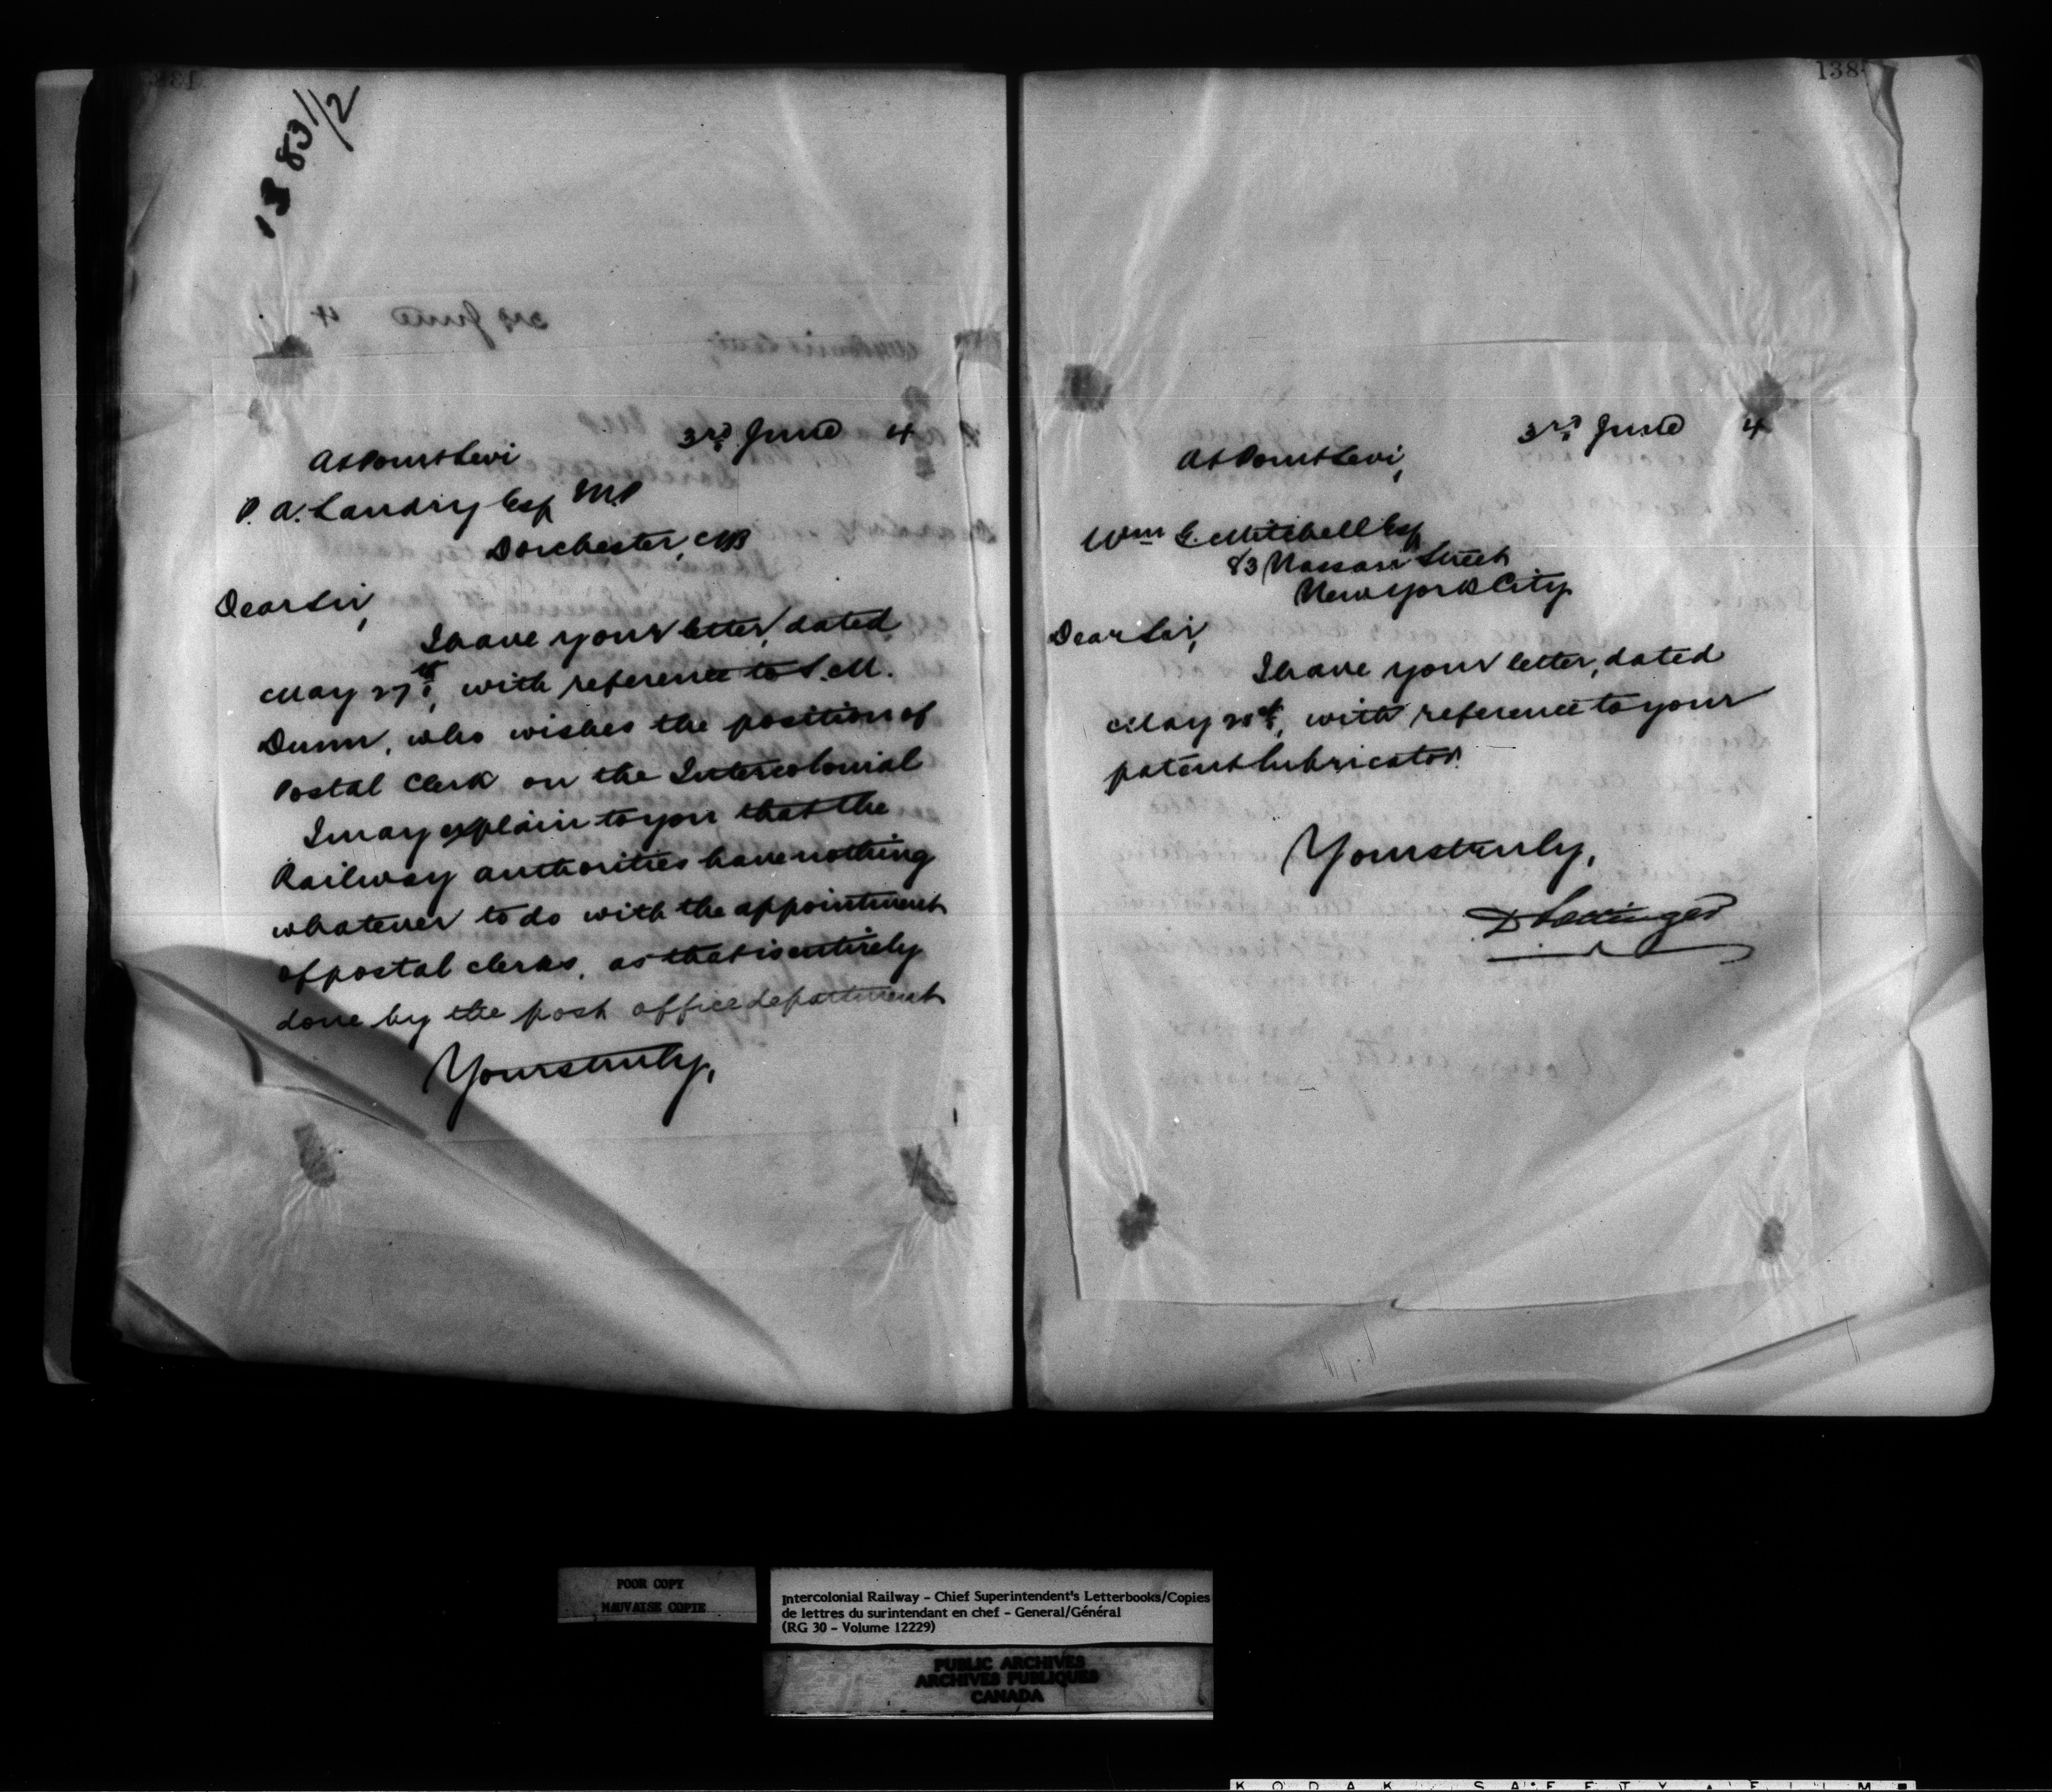 1383 1/2
3rd June 4
At Point Levi
P. A. Landry Esq M.P
Dorchester, NB
Dear Sir,
I have your letter, dated
May 27th, with reference to S. M.
Dunn, who wishes the position of
Postal Clerk on the Intercolonial
I may explain to you that the
Railway authorities have nothing
whatever to do with the appointment
of postal clerks, as that is entirely
done by the post office department
Yours truly,
138
3rd June 4
At Point Levi,
Wm G. Mitchell Esq
83 Nassau Street
New York City
Dear Sir,
I have your letter, dated
May 28th, with reference to your
patent lubricator.
Yours truly,
D Pottinger
POOR COPY
MAUVAISE COPIE
Intercolonial Railway - Chief Superintendent's Letterbooks/Copies
de lettres du surintendant en chef - General/Général
(RG 30 - Volume 12229)
PUBLIC ARCHIVES
ARCHIVES PUBLIQUES
CANADA
KODAK SAFETY FILM